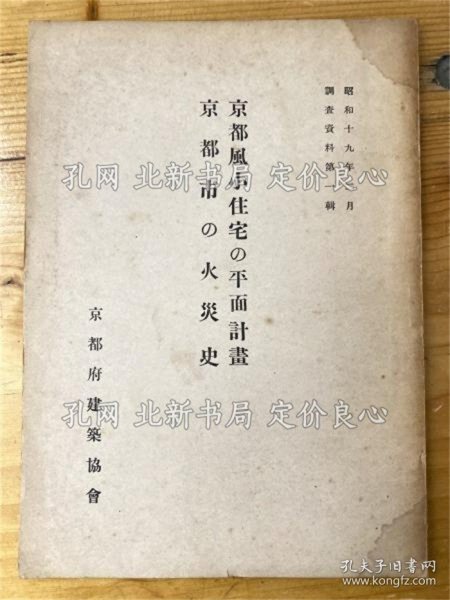 昭和十九年 月
調査資料第 輯
京都風小住宅の平面計畫
京都市の火災史
京都府建築協會
孔网 北新书局 定价良心
孔网 北新书局 定价良心
孔网 北新书局 定价良心
孔夫子旧书网
www.kongfz.com